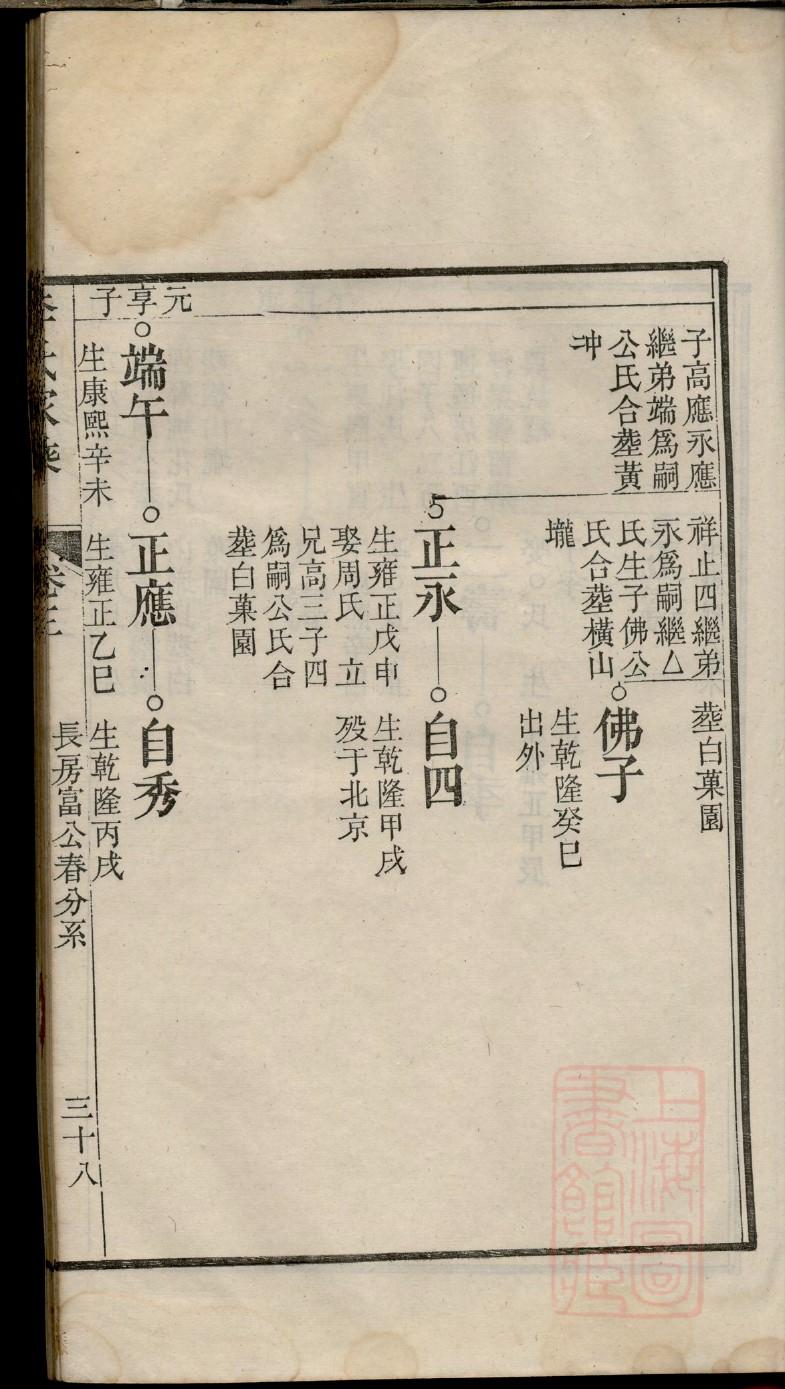 子高應永應
繼弟端爲嗣
公氏合塟黃
冲
祥止四繼弟
永爲嗣繼△
氏生子佛公
氏合塟橫山
壠
塟白菓園
佛子
生乾隆癸巳
出外
正永
生雍正戊申
娶周氏 立
兄高三子四
爲嗣公氏合
塟白菓園
自四
生乾隆甲戌
殁于北京
元享子
端午
生康熙辛未
正應
生雍正乙巳
自秀
生乾隆丙戌
長房富公春分系
三十八
上海圖
書館藏